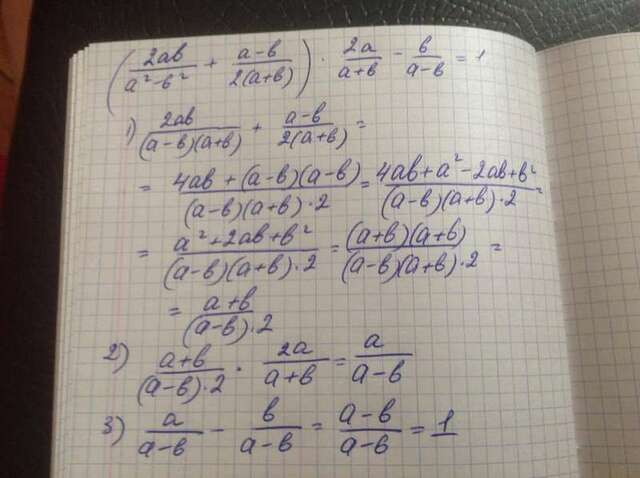 (2ab/(a²-b²) + (a-b)/(2(a+b))) · 2a/(a+b) - b/(a-b) = 1
1) 2ab/((a-b)(a+b)) + (a-b)/(2(a+b)) =
= (4ab+(a-b)(a-b))/((a-b)(a+b)·2) = (4ab+a²-2ab+b²)/((a-b)(a+b)·2) =
= (a²+2ab+b²)/((a-b)(a+b)·2) = ((a+b)(a+b))/((a-b)(a+b)·2) =
= (a+b)/((a-b)·2)
2) (a+b)/((a-b)·2) · 2a/(a+b) = a/(a-b)
3) a/(a-b) - b/(a-b) = (a-b)/(a-b) = 1